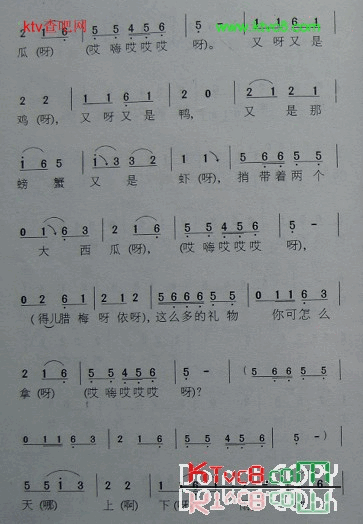 ktv查吧网 www.ktvc8.com
2 1 6 | 5 5 4 5 6 | 5 - | 0 2 1 2
瓜(呀) (哎嗨哎哎哎 呀)。 又呀又是
2 2 | 1 1 6 1 | 2 0 | 2 1 2 1
鸡(呀), 又呀又是 鸭, 又是那
i 6 5 | i 3 3 2 | 1 1 | 5 6 6 5 5
螃蟹 又是 虾(呀), 捎带着两个
0 1 6 3 | 2 1 6 | 5 5 4 5 6 | 5 -
大西 瓜(呀), (哎嗨哎哎哎 呀),
0 2 6 1 | 2 1 2 1 | 5 6 6 6 5 5 | 0 1 6 3
(得儿腊 梅呀依呀), 这么多的礼物 你可怎么
2 1 6 | 5 5 4 5 6 | 5 - | (5 5 3 5 6
拿(呀) (哎嗨哎哎哎 呀)?
0 1 1 6 3 | 2 1 2 1 6 | 5 5 4 5 6 | 5 -)
5 5 i 3 | 2 2 1
天(哪) 上(啊) 下
KTVC8.COM
COPY